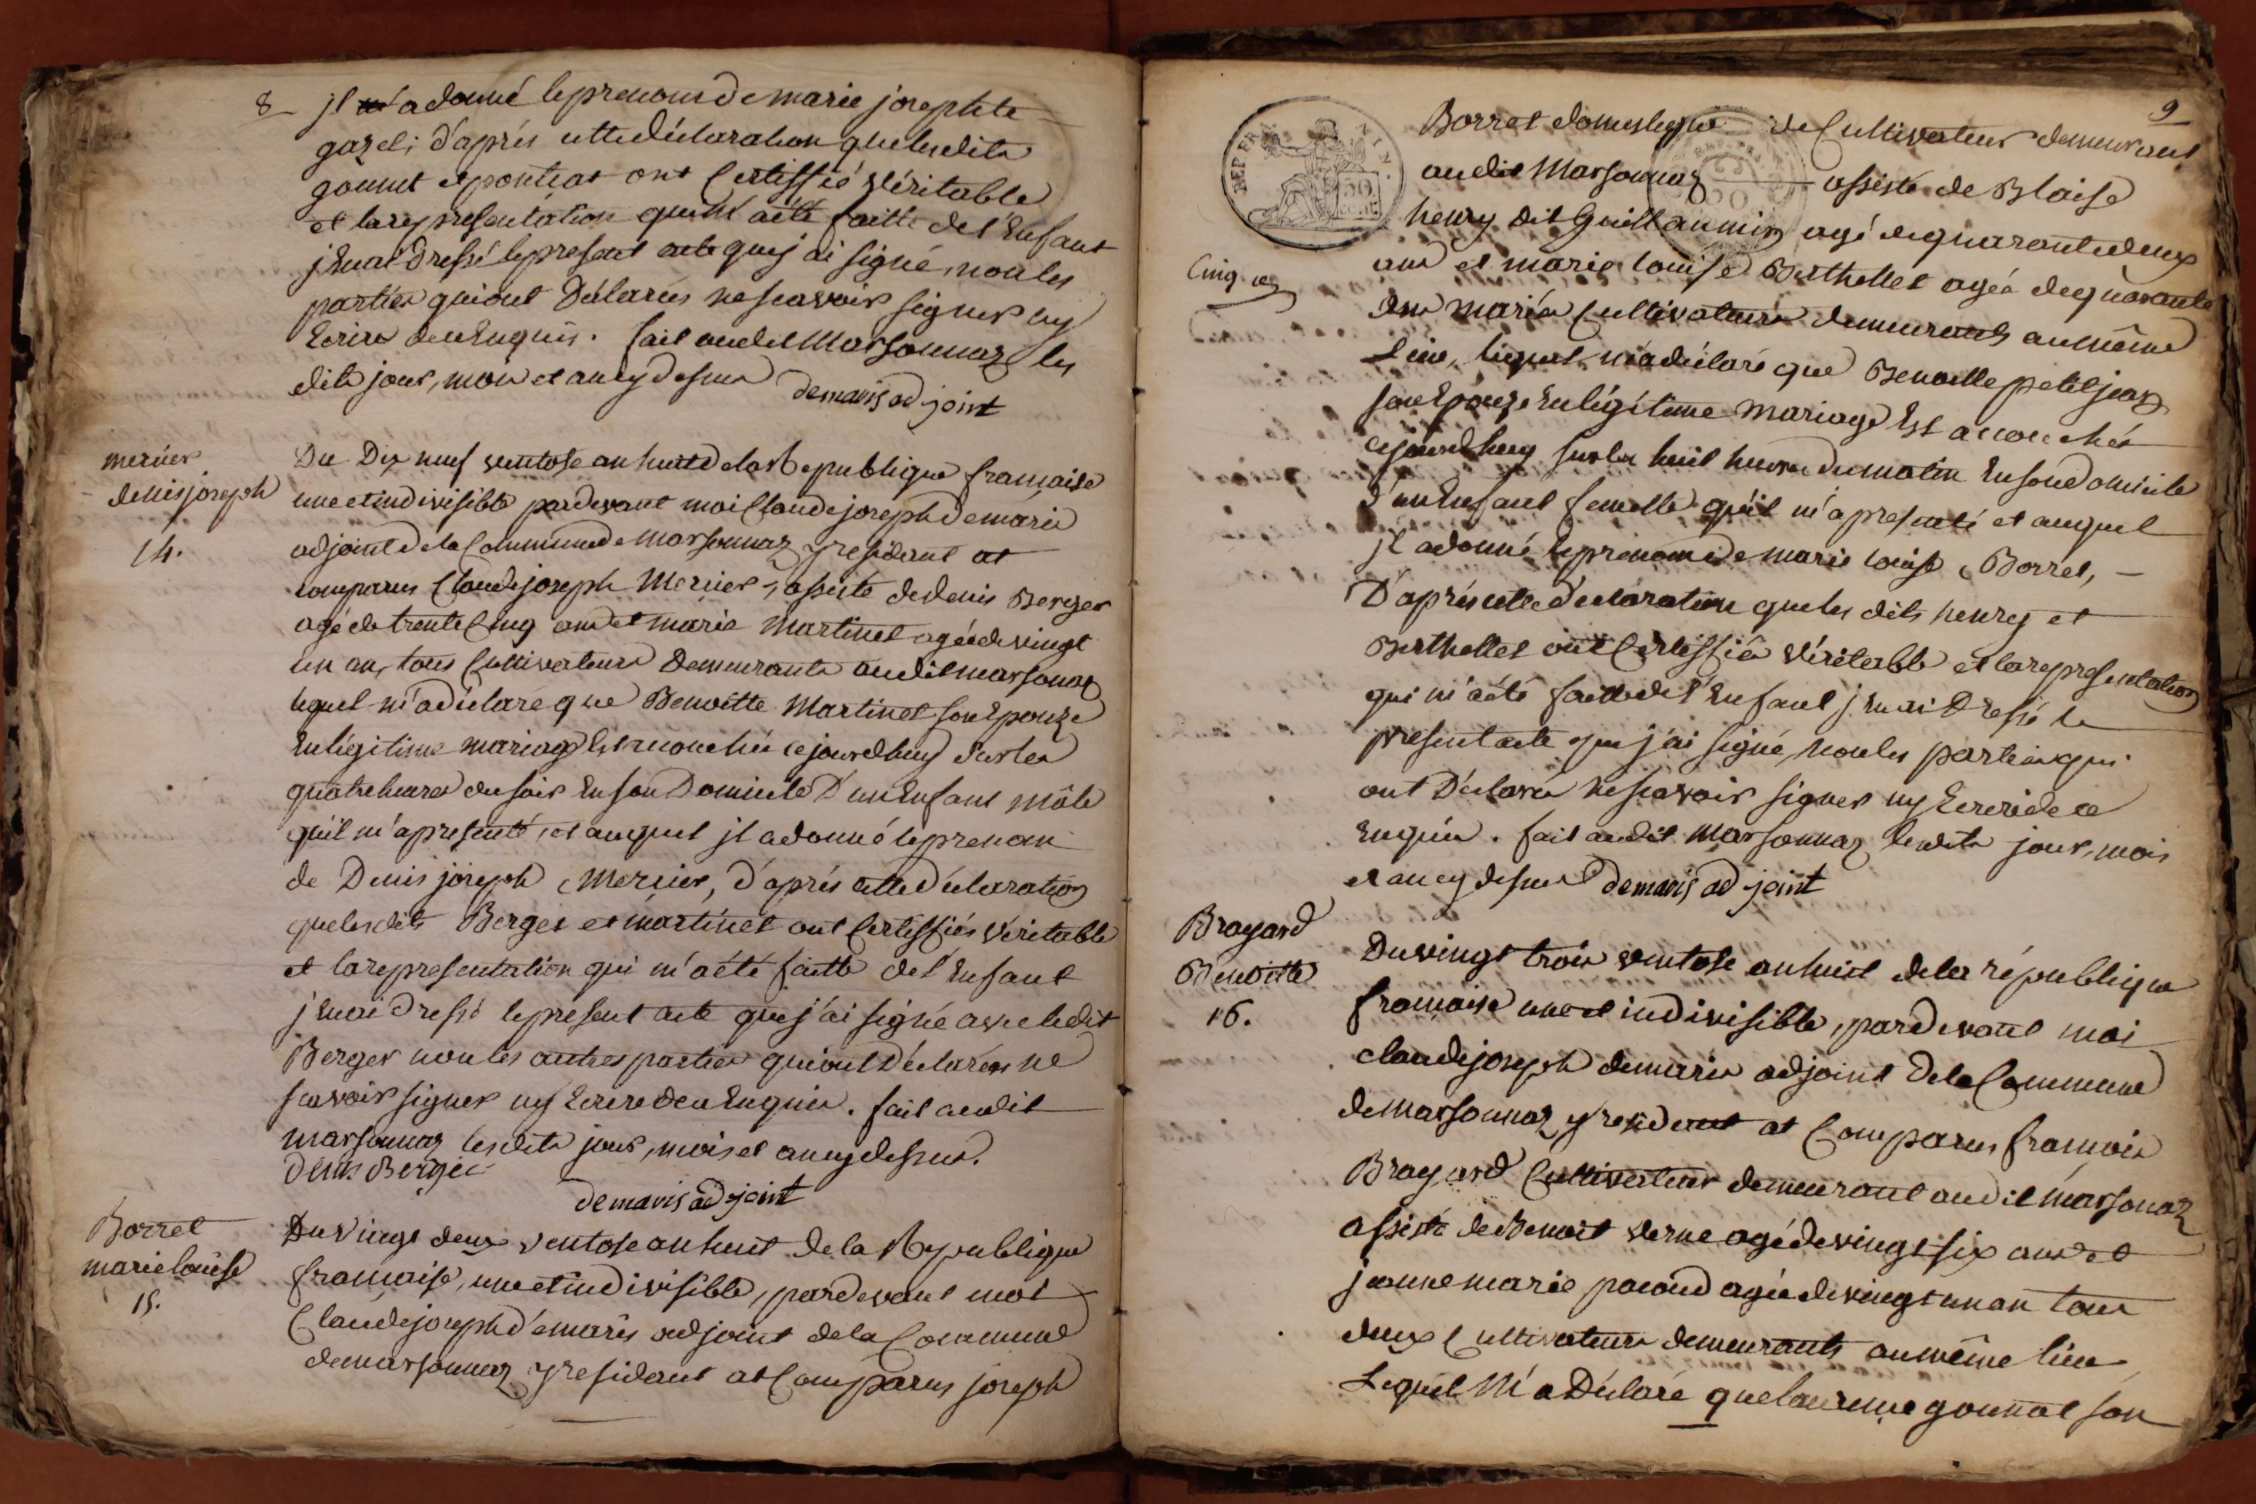 8
jl a donné le prenom de marie josephte
gazel; d'après cette déclaration que lesdits
gonnet et pontiat ont Certiffié véritable
et la representation qui m'a été faitte de l'Enfant
j'En ai dressé le present acte que j'ai signé, non les
parties qui ont Déclarés ne scavoir signer ny
Ecrire de ce Enquis. fait audit Marsonnaz les
dits jour, mois et an cy dessus demaris adjoint
mercier
denis joseph
14.
Du Dix neuf ventose an huit de la Republique francaise
une et indivisible pardevant moi Claude joseph Demaris
adjoint de la Commune de Marsonnaz y residant at
comparus Claude joseph Mercier, assisté de denis Berger
agé de trente Cinq ans et marie Martinet agée de vingt
un an, tous Cultivateurs Demeurants audit marsonnaz
lequel m'a déclaré que Benoitte Martinet son Epouze
En légitime mariage Est accouchée cejourdhuy sur les
quatre heures du soir En son Domicile D'un Enfant mâle
qu'il m'a presenté, et auquel jl a donné le prenom
de Denis joseph Mercier, d'après cette déclaration
que lesdits Berger et martinet ont Certiffiés véritable
et la representation qui m'a été faitte de l'Enfant
j'En ai dressé le present acte que j'ai signé avec ledit
Berger non les autres parties qui ont Déclarés ne
scavoir signer ny Ecrire de ce Enquis. fait audit
marsonnaz lesdits jour, mois et an cy dessus.
denis Berger
demaris adjoint
Borret
marie louise
15.
Du Vingt deux ventose an huit de la Republique
francaise, une et indivisible, pardevant moi
Claude joseph demaris adjoint de la Commune
de marsonnaz y residant at Comparus joseph
9
REP. FRA.
Borret domestique de Cultivateur demeurant
audit Marsonnaz assisté de Blaise
henry dit Guillaumin agé de quarante deux
Cinq
ans et marie louise Berthellet agée de quarante
ans mariés Cultivateurs demeurants au même
Lieu, lequel m'a déclaré que Benoitte petitjean
son Epouze En légitime mariage Est accouchée
cejourdhuy sur les huit heures du matin En son domicile
d'un Enfant femelle qu'il m'a presenté et auquel
jl a donné le prenom de marie louise Borret,
D'après cette déclaration que les dits henry et
Berthellet ont Certiffiés véritable et la representation
qui m'a été faitte de l'Enfant j'En ai Dressé le
present acte que j'ai signé, non les parties qui
ont Déclarés ne scavoir signer ny Ecrire de ce
Enquis. fait audit Marsonnaz lesdits jour, mois
et an cy dessus demaris adjoint
Brayard
Benoitte
16.
Du vingt trois ventose an huit de la république
francaise une et indivisible, pardevant moi
claude joseph demaris adjoint de la Commune
de marsonnaz y residant at Comparus francois
Brayard Cultivateur demeurant audit marsonnaz
assisté de Benoit verne agé de vingt six ans et
jeanne marie pacoud agée de vingt un an tous
deux Cultivateurs demeurants au même lieu
Lequel M'a Déclaré que laurence gonnat son